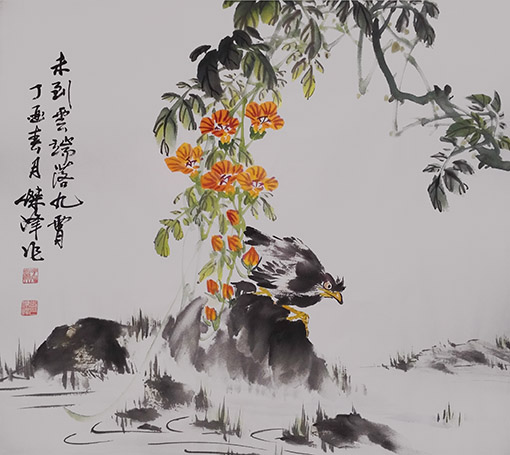 未到雲端落九霄
丁酉春月傑峰作